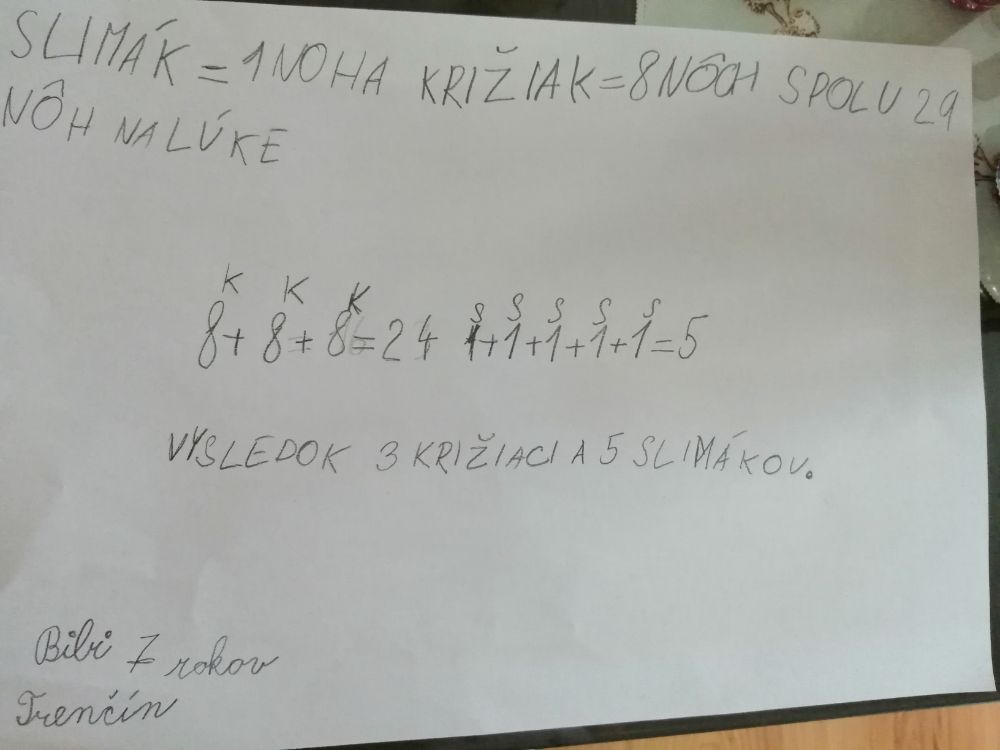 SLIMÁK = 1 NOHA KRIŽIAK = 8 NÔCH SPOLU 29
NÔH NA LÚKE
K K K S S S S S
8+ 8 + 8 = 24 1+1+1+1+1=5
VÝSLEDOK 3 KRIŽIACI A 5 SLIMÁKOV.
Bibi 7 rokov
Trenčín